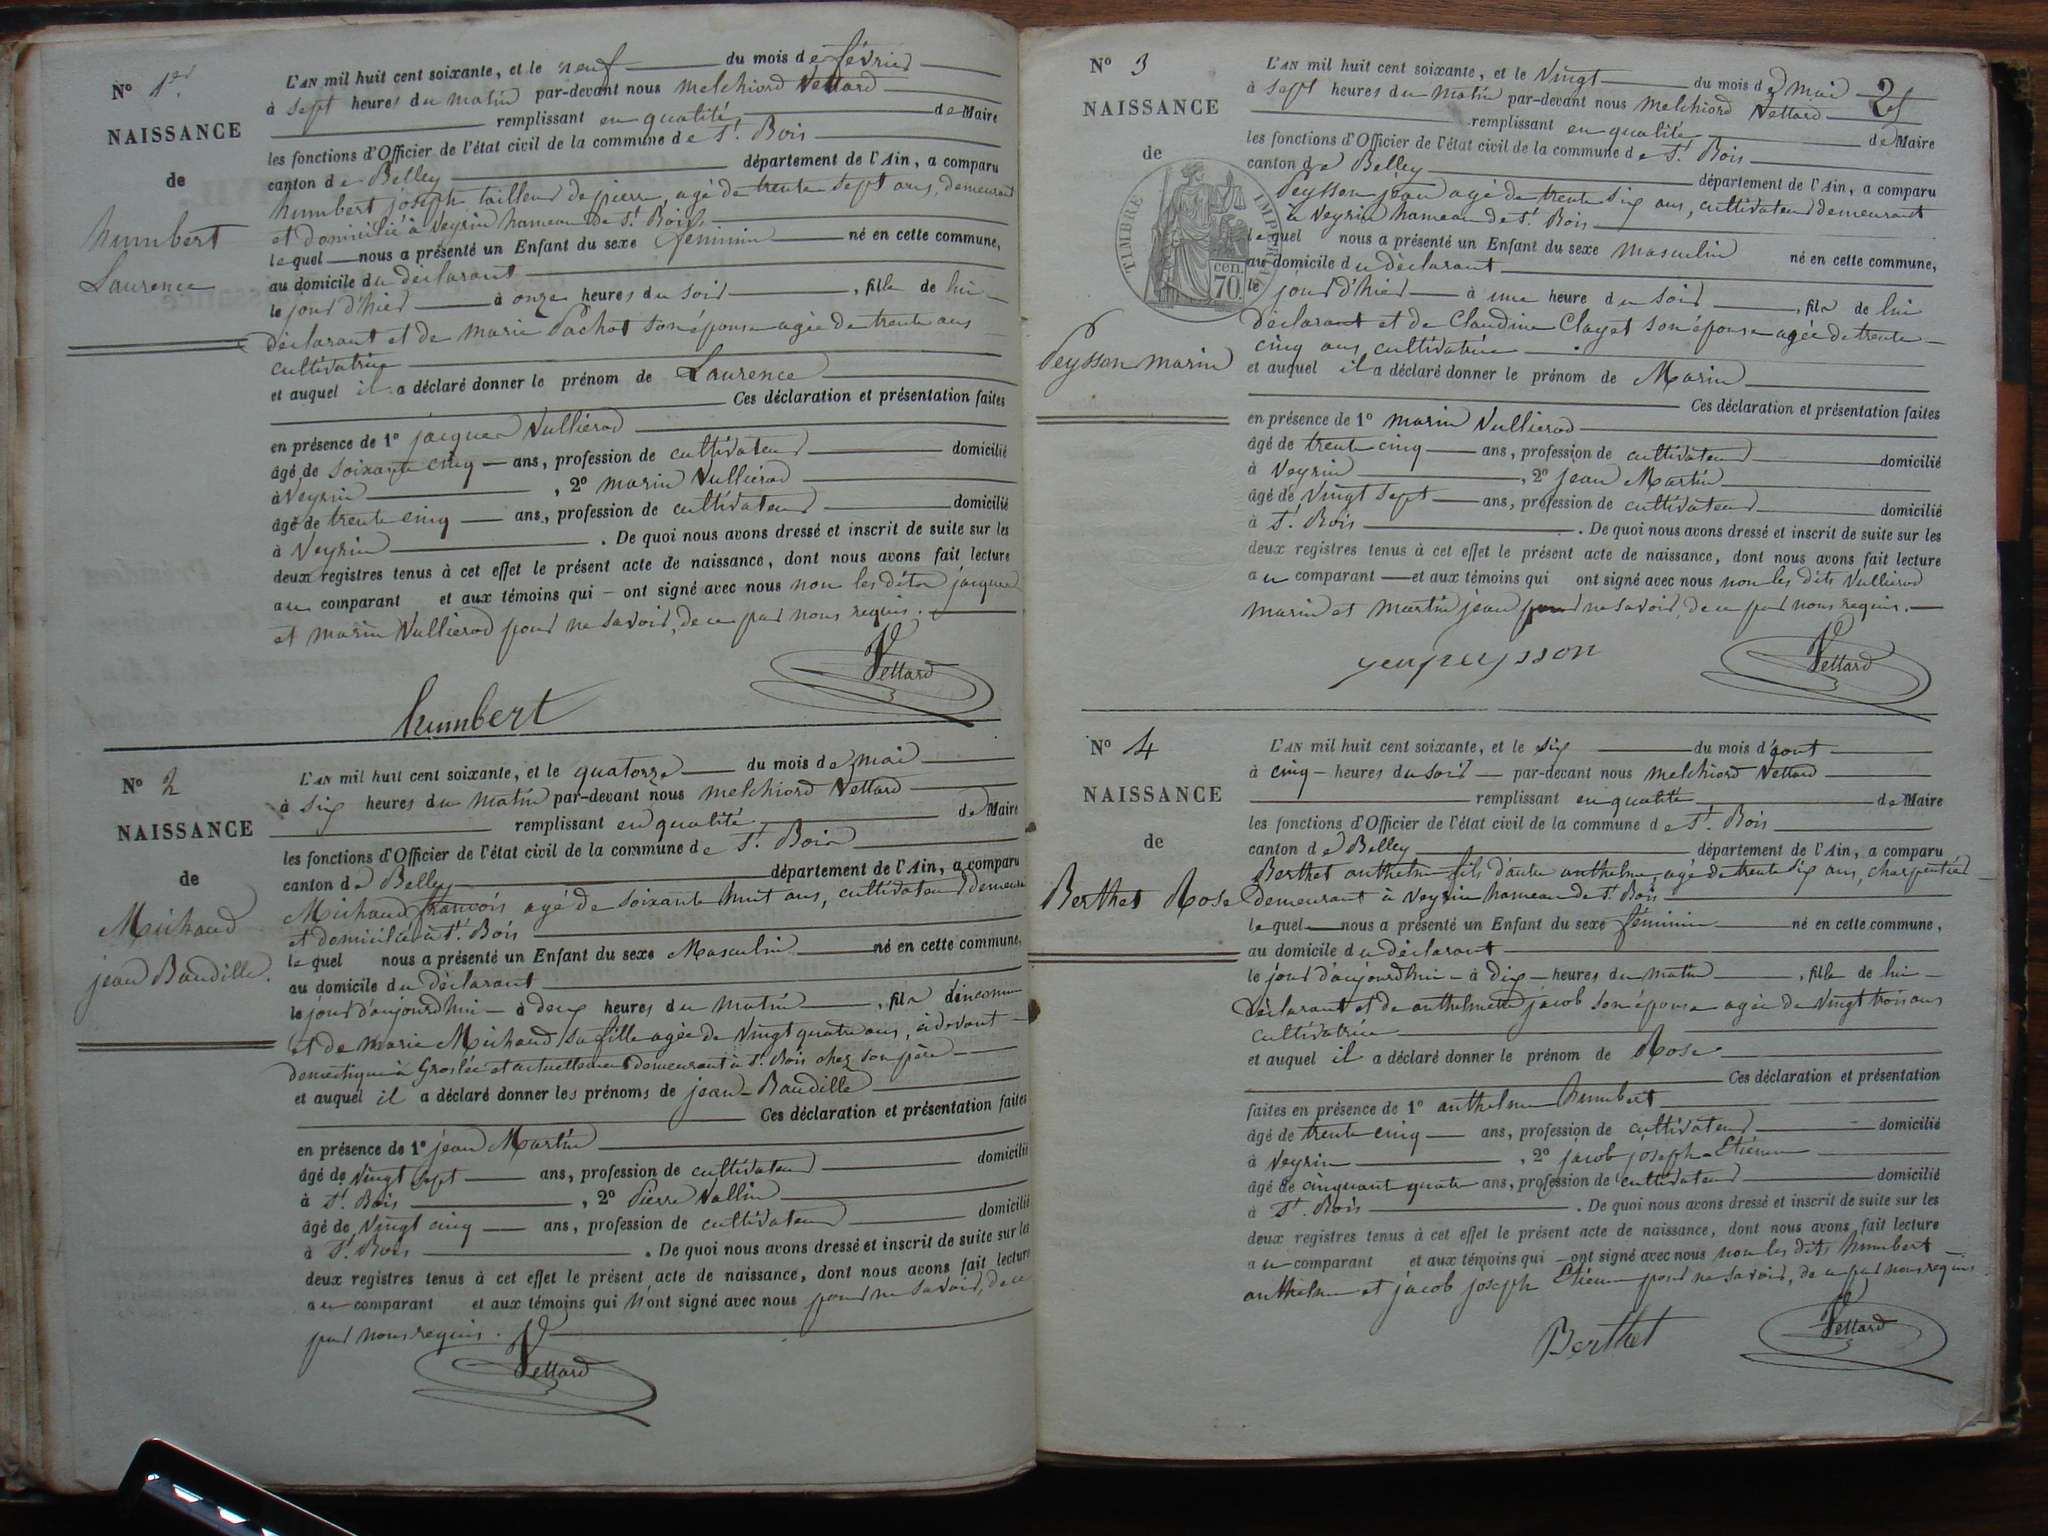 N° 1er
NAISSANCE
de
humbert
Laurence
L'AN mil huit cent soixante, et le neuf du mois de février
à sept heures du matin par-devant nous melchiord Vettard
remplissant en qualité de Maire
les fonctions d'Officier de l'état civil de la commune de St. Bois
canton de Belley département de l'Ain, a comparu
humbert joseph tailleur de pierre, agé de trente sept ans, demeurant
et domicilié à Veyrin hameau de St. Bois
lequel nous a présenté un Enfant du sexe féminin né en cette commune,
au domicile du déclarant
le jour d'hier à onze heures du soir, fille de lui
déclarant et de marie Pachot son épouse agée de trente ans
cultivatrice
et auquel il a déclaré donner le prénom de Laurence
Ces déclaration et présentation faites
en présence de 1° jacques Vullierod
âgé de soixante cinq ans, profession de cultivateur domicilié
à Veyrin, 2° marin Vullierod
âgé de trente cinq ans, profession de cultivateur domicilié
à Veyrin. De quoi nous avons dressé et inscrit de suite sur les
deux registres tenus à cet effet le présent acte de naissance, dont nous avons fait lecture
au comparant et aux témoins qui ont signé avec nous non les dits jacques
et marin Vullierod pour ne savoir, de ce par nous requis.
Vettard
humbert
N° 2
NAISSANCE
de
Michaud
jean Baudille.
L'AN mil huit cent soixante, et le quatorze du mois de mai
à six heures du matin par-devant nous melchiord Vettard
remplissant en qualité de Maire
les fonctions d'Officier de l'état civil de la commune de St. Bois
canton de Belley département de l'Ain, a comparu
Michaud francois agé de soixante huit ans, cultivateur demeurant
et domicilié à St. Bois
lequel nous a présenté un Enfant du sexe Masculin né en cette commune,
au domicile du déclarant
le jour d'aujourd'hui à deux heures du matin, fils d'inconnu
et de marie Michaud sa fille agée de vingt quatre ans, cidevant
domestique à Groslée et actuellement demeurant à St. Bois chez son père
et auquel il a déclaré donner les prénoms de jean Baudille
Ces déclaration et présentation faites
en présence de 1° jean Martin
âgé de vingt sept ans, profession de cultivateur domicilié
à St. Bois, 2° Pierre Vallin
âgé de vingt cinq ans, profession de cultivateur domicilié
à St. Bois. De quoi nous avons dressé et inscrit de suite sur les
deux registres tenus à cet effet le présent acte de naissance, dont nous avons fait lecture
au comparant et aux témoins qui n'ont signé avec nous pour ne savoir, de ce
par nous requis.
Vettard
N° 3
NAISSANCE
de
TIMBRE IMPÉRIAL
70 cen.
Peysson marin
2
L'AN mil huit cent soixante, et le vingt du mois de mai
à sept heures du matin par-devant nous melchiord Vettard
remplissant en qualité de Maire
les fonctions d'Officier de l'état civil de la commune de St. Bois
canton de Belley département de l'Ain, a comparu
Peysson jean agé de trente six ans, cultivateur demeurant
à Veyrin hameau de St. Bois
lequel nous a présenté un Enfant du sexe masculin né en cette commune,
au domicile du déclarant
le jour d'hier à une heure du soir, fils de lui
déclarant et de Claudine Clayet son épouse agée de trente
cinq ans cultivatrice
et auquel il a déclaré donner le prénom de Marin
Ces déclaration et présentation faites
en présence de 1° marin Vullierod
âgé de trente cinq ans, profession de cultivateur domicilié
à Veyrin, 2° jean Martin
âgé de vingt sept ans, profession de cultivateur domicilié
à St. Bois. De quoi nous avons dressé et inscrit de suite sur les
deux registres tenus à cet effet le présent acte de naissance, dont nous avons fait lecture
au comparant et aux témoins qui ont signé avec nous non les dits Vullierod
marin et martin jean pour ne savoir, de ce par nous requis.
Vettard
N° 4
NAISSANCE
de
Berthet Rose
L'AN mil huit cent soixante, et le six du mois d'aout
à cinq heures du soir par-devant nous melchiord Vettard
remplissant en qualité de Maire
les fonctions d'Officier de l'état civil de la commune de St. Bois
canton de Belley département de l'Ain, a comparu
Berthet anthelme fils d'autre anthelme, agé de trente six ans, charpentier
demeurant à Veyrin hameau de St. Bois
lequel nous a présenté un Enfant du sexe féminin né en cette commune,
au domicile du déclarant
le jour d'aujourd'hui à dix heures du matin, fille de lui
déclarant et de anthelmette jacob son épouse agée de vingt trois ans
cultivatrice
et auquel il a déclaré donner le prénom de Rose
Ces déclaration et présentation
faites en présence de 1° anthelme humbert
âgé de trente cinq ans, profession de cultivateur domicilié
à Veyrin, 2° jacob joseph Etienne
âgé de cinquant quatre ans, profession de cultivateur domicilié
à St. Bois. De quoi nous avons dressé et inscrit de suite sur les
deux registres tenus à cet effet le présent acte de naissance, dont nous avons fait lecture
au comparant et aux témoins qui ont signé avec nous non les dits humbert
anthelme et jacob joseph Etienne pour ne savoir, de ce par nous requis
Berthet Vettard